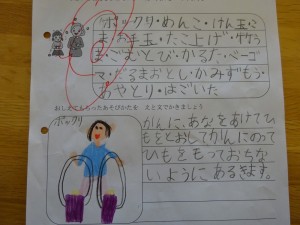 ポックリ・めんこ・けん玉・こ
ま・お手玉・たこ上げ・竹うま
・ごむとび・かるた・ベーゴ
マ・だるまおとし・かみずもう・
あやとり・はごいた
おしえてもらったあそびかたを えと文でかきましょう
ポックリ
かんに、あなをあけてひ
もをとおしてかんにのって
ひもをもっておちな
いようにあるきます。